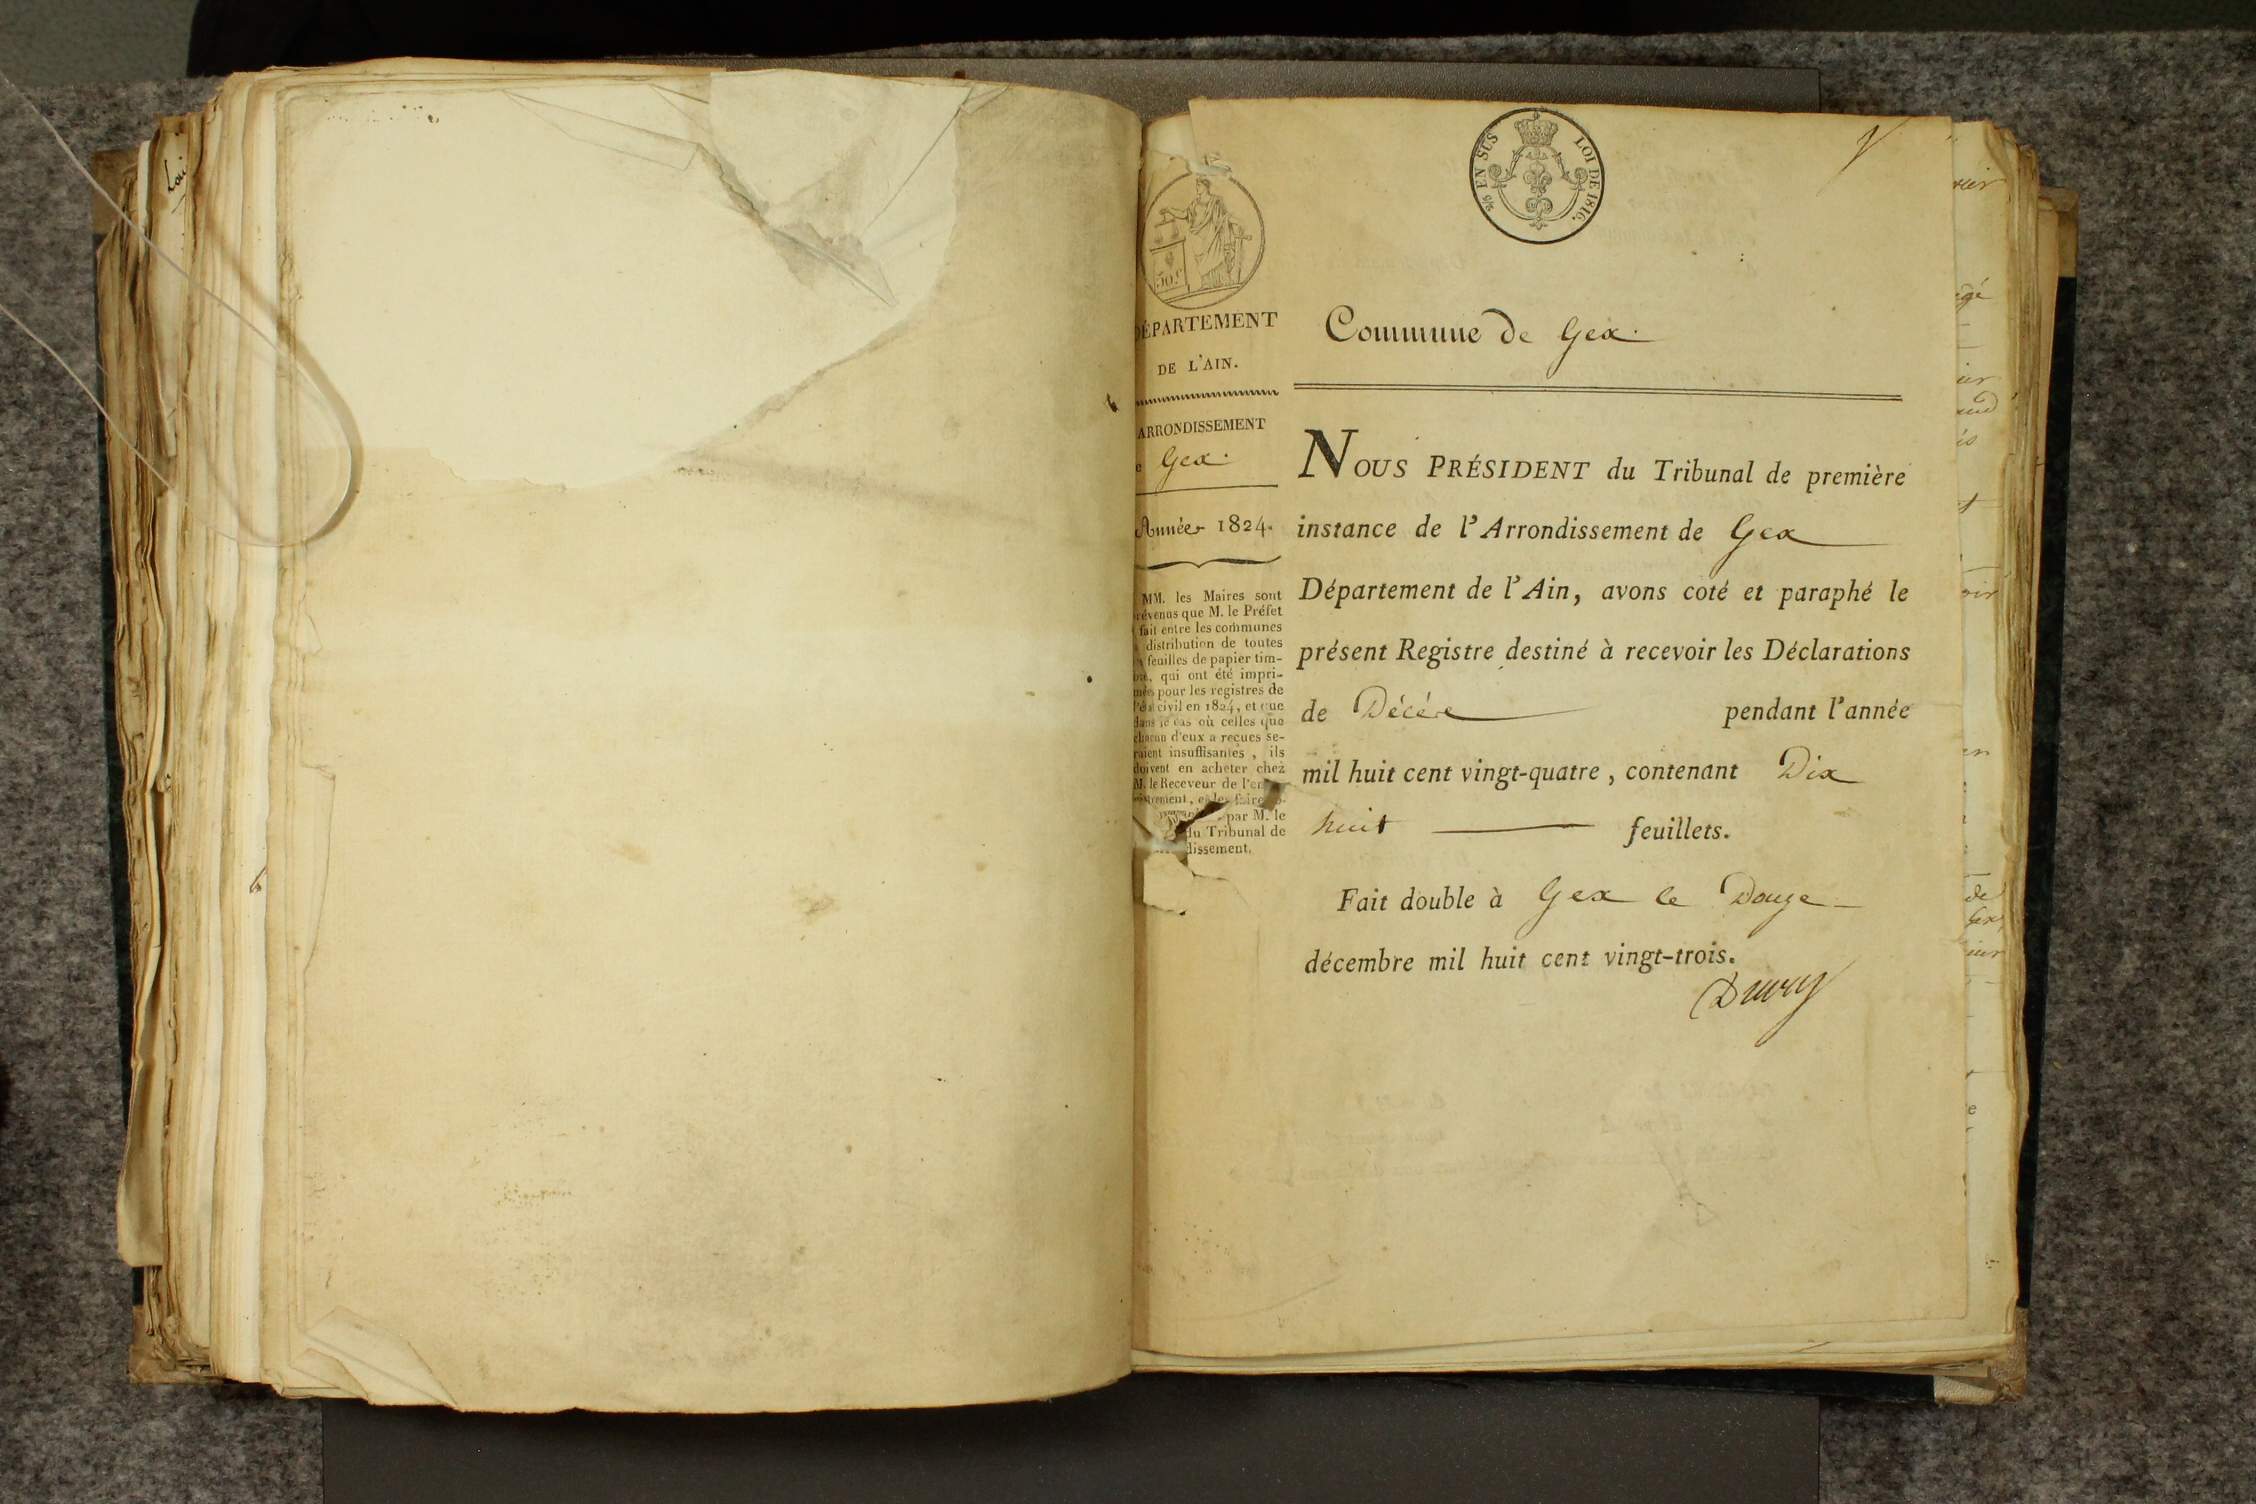 Loi
EN SUS
LOI DE 1816.
50.c
DÉPARTEMENT
DE L'AIN.
ARRONDISSEMENT
Gex.
Année 1824.
MM. les Maires sont
révenus que M. le Préfet
fait entre les communes
distribution de toutes
feuilles de papier tim-
bré, qui ont été impri-
mées pour les registres de
l'état civil en 1824, et que
dans le cas où celles que
chacun d'eux a reçues se-
raient insuffisantes, ils
doivent en acheter chez
M. le Receveur de l'en
par M. le
du Tribunal de
dissement.
Commune de Gex.
NOUS PRÉSIDENT du Tribunal de première
instance de l'Arrondissement de Gex
Département de l'Ain, avons coté et paraphé le
présent Registre destiné à recevoir les Déclarations
de Décès pendant l'année
mil huit cent vingt-quatre, contenant Dix
huit feuillets.
Fait double à Gex le Douze
décembre mil huit cent vingt-trois.